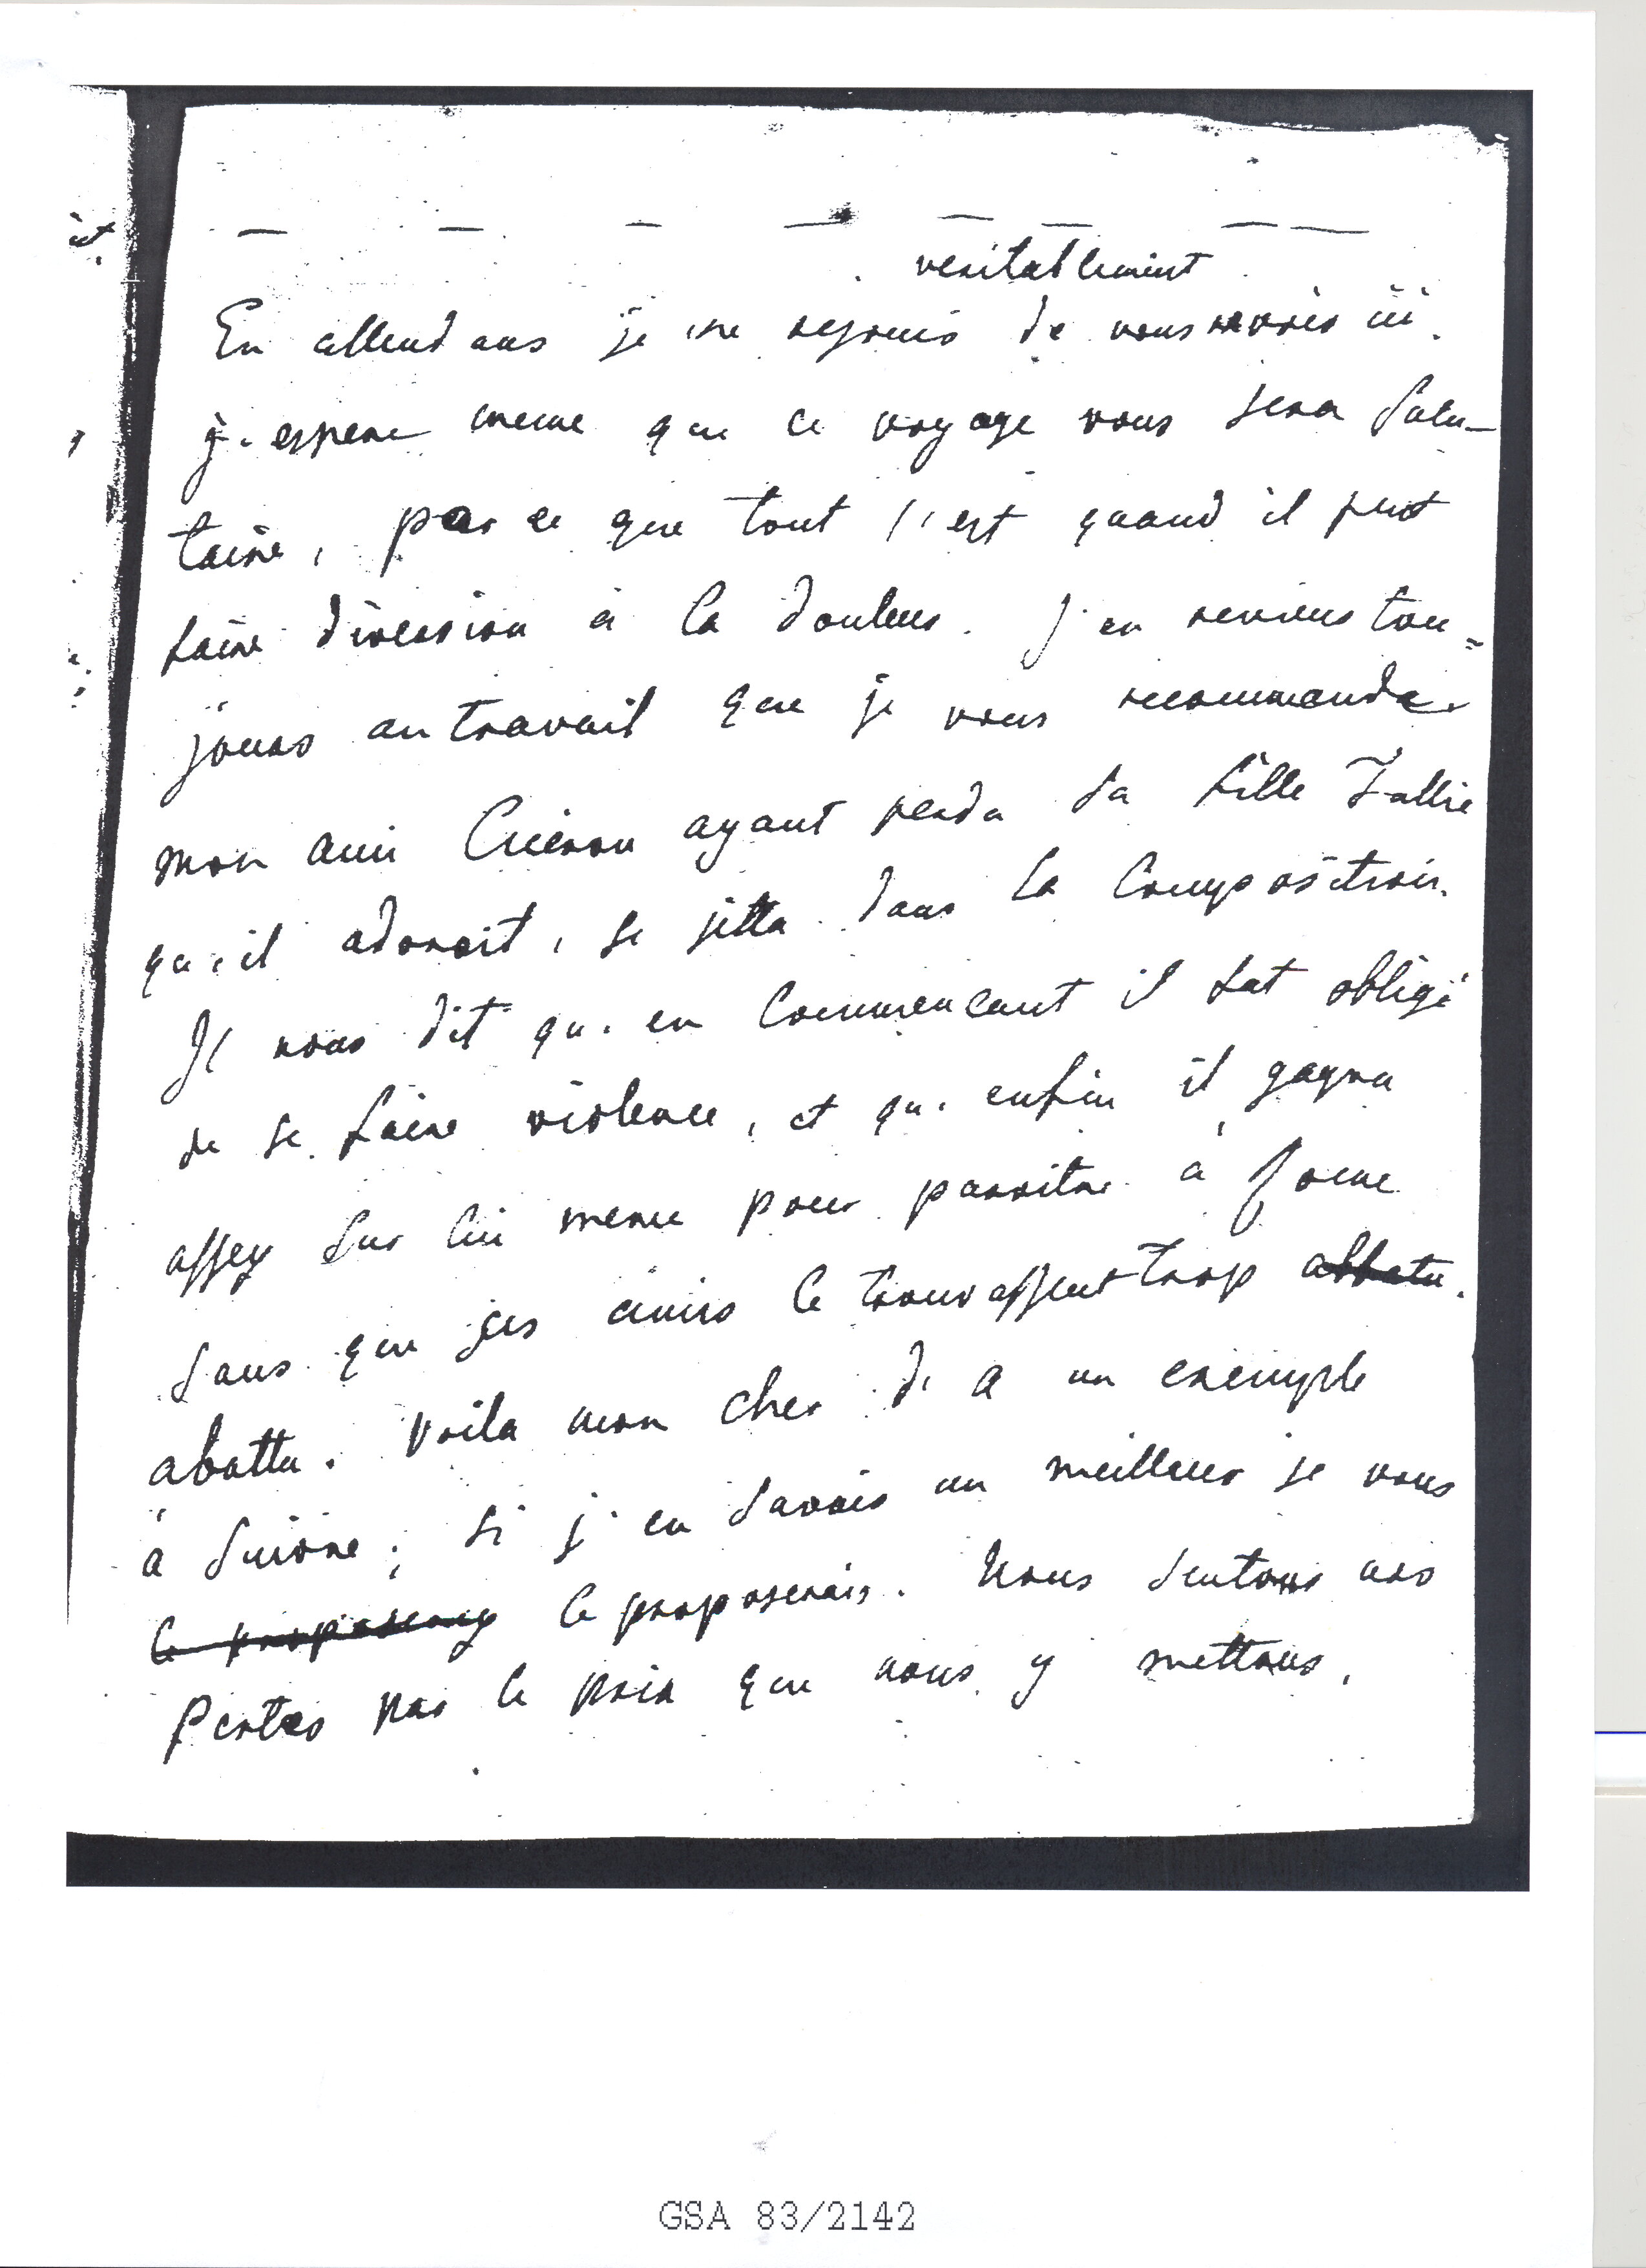 — — — — — — — —
veritablement
En attendans je me rejouis de vous revoir ici.
j'espere meme que ce voyage vous sera salu-
taire, par ce que tout l'est quand il peut
faire diversion à la douleur. J'en reviens tou=
jours au travail que je vous recommande.
mon ami Ciceron ayant perdu sa fille Tullie
qu'il adoroit, se jetta dans la composition.
Il nous dit qu'en commencant il fut obligé
de se faire violence, et qu'enfin il gagna
assez sur lui meme pour paroitre à Rome
sans que ses amis le trouvassent trop abbatu.
abattu. Voila mon cher d'A un exemple
à suivre; si j'en savois un meilleur je vous
le proposerez le proposerais. Nous sentons nos
Pertes par le prix que nous y mettons,
et
GSA 83/2142